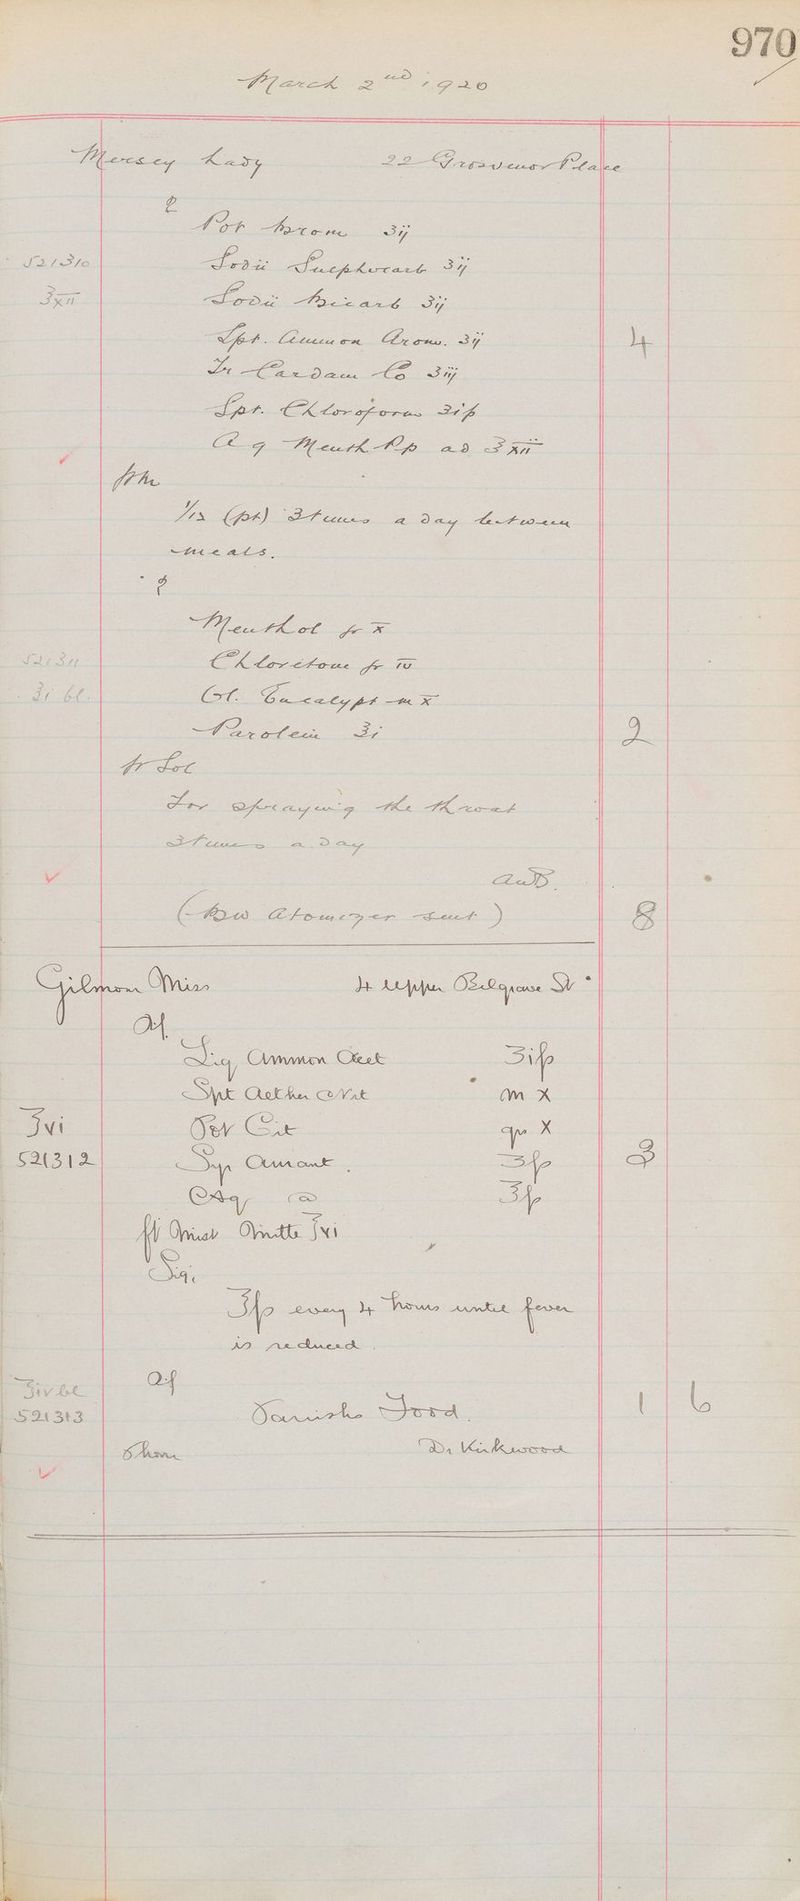 970
March 2nd 1920
Mersey Lady 22 Grosvenor Place
℞
Pot Brom ʒij
521310 Sodii Sulphocarb ʒij
℥xii Sodii Bicarb ʒij
Spt. Ammon Arom. ʒij 4
Tr Cardam Co ʒiij
Spt. Chloroform ʒiß
Aq Menth Pip ad ℥xii
ft m
1/12 (pt) 3 times a day between
meals.
℞
Menthol gr x
521311 Chloretone gr iv
℥i bl. Ol. Eucalypt m x
Parolein ℥i 2
ft Sol
For spraying the throat
3 times a day
AWB.
(BW Atomizer sent) 8
Gilmour Miss 4 Upper Belgrave St
℞
Liq Ammon Acet ʒiß
Spt Aether Nit m x
℥vi Pot Cit grs x
521312 Syr Aurant. ʒß 3
Aq a ℥ß
ft Mist Mitte ℥vi
Sig.
℥ß every 4 hours until fever
is reduced.
℥iv bl ℞
521313 Parrishs Food. 1 6
Phone Dr Kirkwood